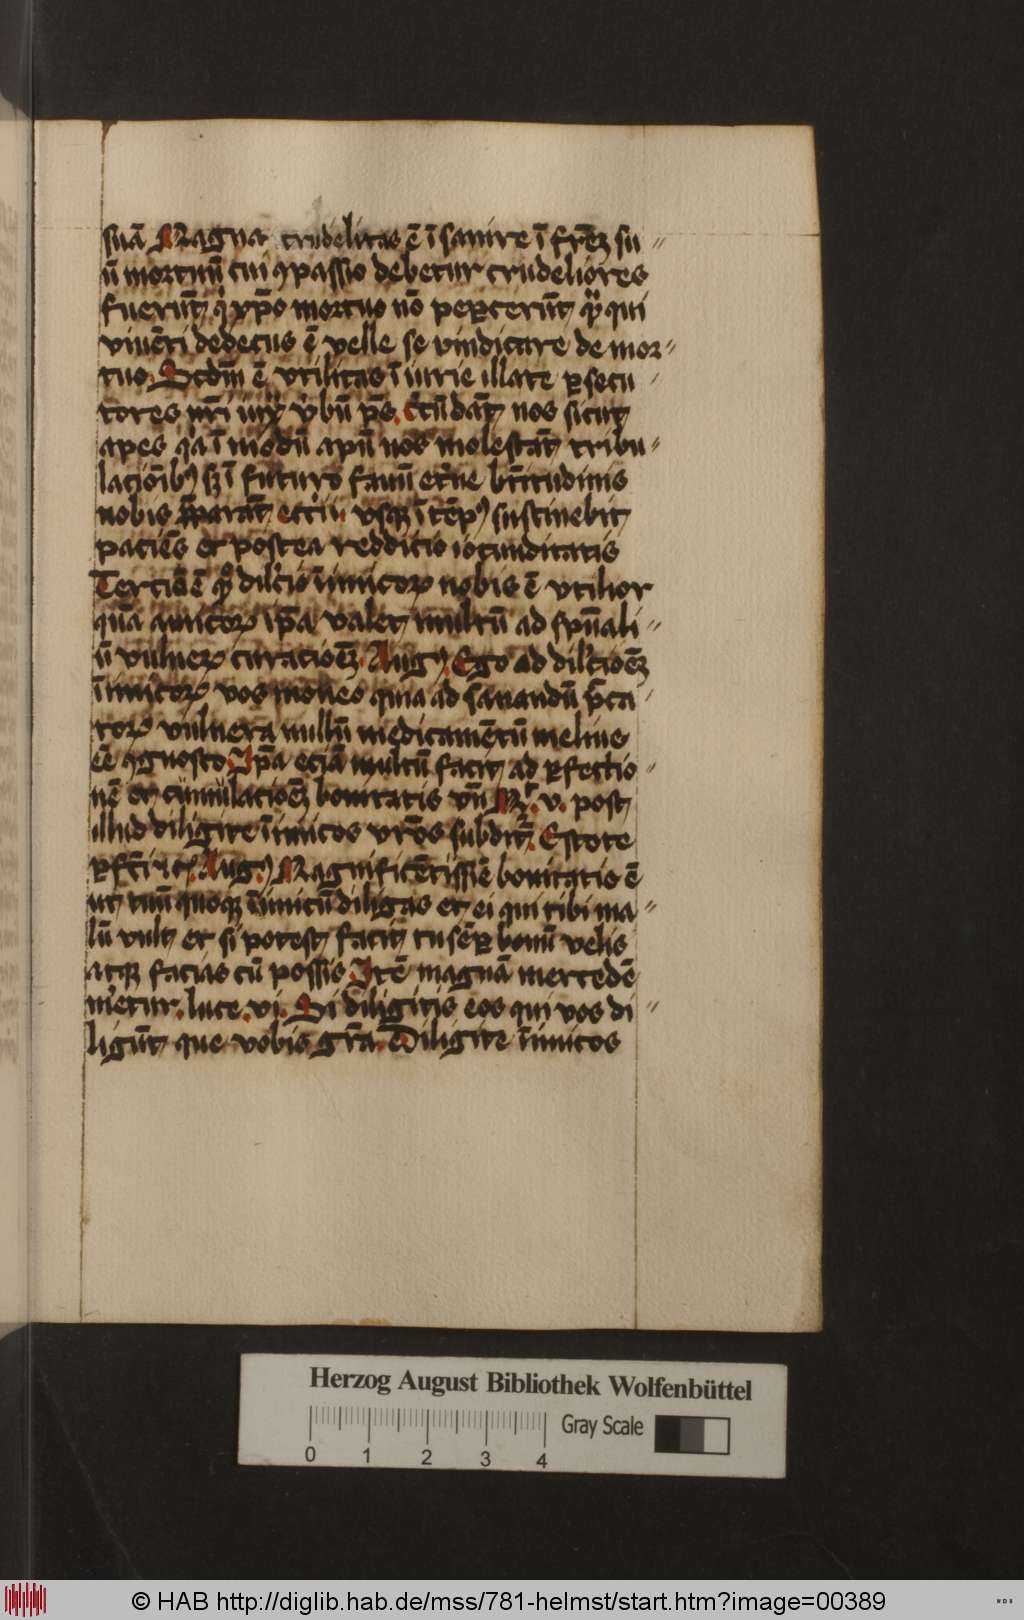 suā Magna crudelitas ē ī sauire ī frēȝ su〃
ū mortuū cui ꝯpassio debetur crudeliores
fuerūt qͥ xp̄o mortuo nō peꝑcerūt qui
viuēti dedecus ē velle se vindicare de mor〃
tuo Scdm̄ ē vtilitas īiurie illate ꝑsecu〃
tores nr̄i vnꝰ v̓bū ps̄. Cͬcūdāt nos sicut
apes qͥa ī modū apū nos molestāt tribu〃
lacioībꝰ sȝ ī futuro fauū et̓ne bt̄itudinis
nobis p̄parāt ecc̓ii vsqȝ ī tēpꝰ sustinebit
paciēs et postea redditio iocunditatis
Terciū ē qꝫ dilc̄io īimicoꝝ nobis ē vtilior
quā amicoꝝ ip̄a valet multū ad spūali〃
ū vulneꝝ curacioēȝ Augꝰ Ego ad dilc̄ioēȝ
īimicoꝝ vos moneo quia ad sanandū pc̄ca〃
toꝝ vulnera nullū medicamētū melius
eē ꝯgnosco Ip̄a eciā multū facit ad ꝑfectio〃
nē et cumulacioēȝ bonitatis vn̄ Mͭ. v. post
illud diligite īimicos vr̄os subditꝛ. Estote
ꝑfc̄i ⁊c̄. Augꝰ Magnificētissiē bonitatis ē
ut tuū quoqȝ īimicū diligas et ei qui tibi ma〃
lū vult et si potest facit tu sēꝑ bonū velis
atqȝ facias cū possis Itē magnā mercedē
m̓etur. luce. vi. Si diligitis eos qui vos di〃
ligūt que vobis gr̄a ē Diligite īimicos
Herzog August Bibliothek Wolfenbüttel
Gray Scale
0 1 2 3 4
© HAB http://diglib.hab.de/mss/781-helmst/start.htm?image=00389